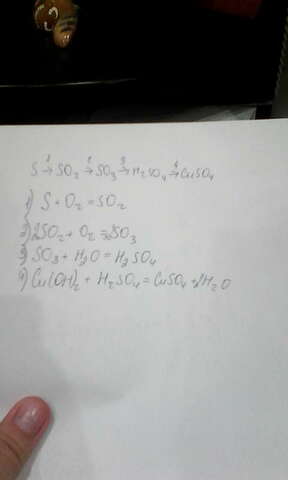 S →¹ SO₂ →² SO₃ →³ H₂SO₄ →⁴ CuSO₄
1) S + O₂ = SO₂
2) 2SO₂ + O₂ = 2SO₃
3) SO₃ + H₂O = H₂SO₄
4) Cu(OH)₂ + H₂SO₄ = CuSO₄ + 2H₂O